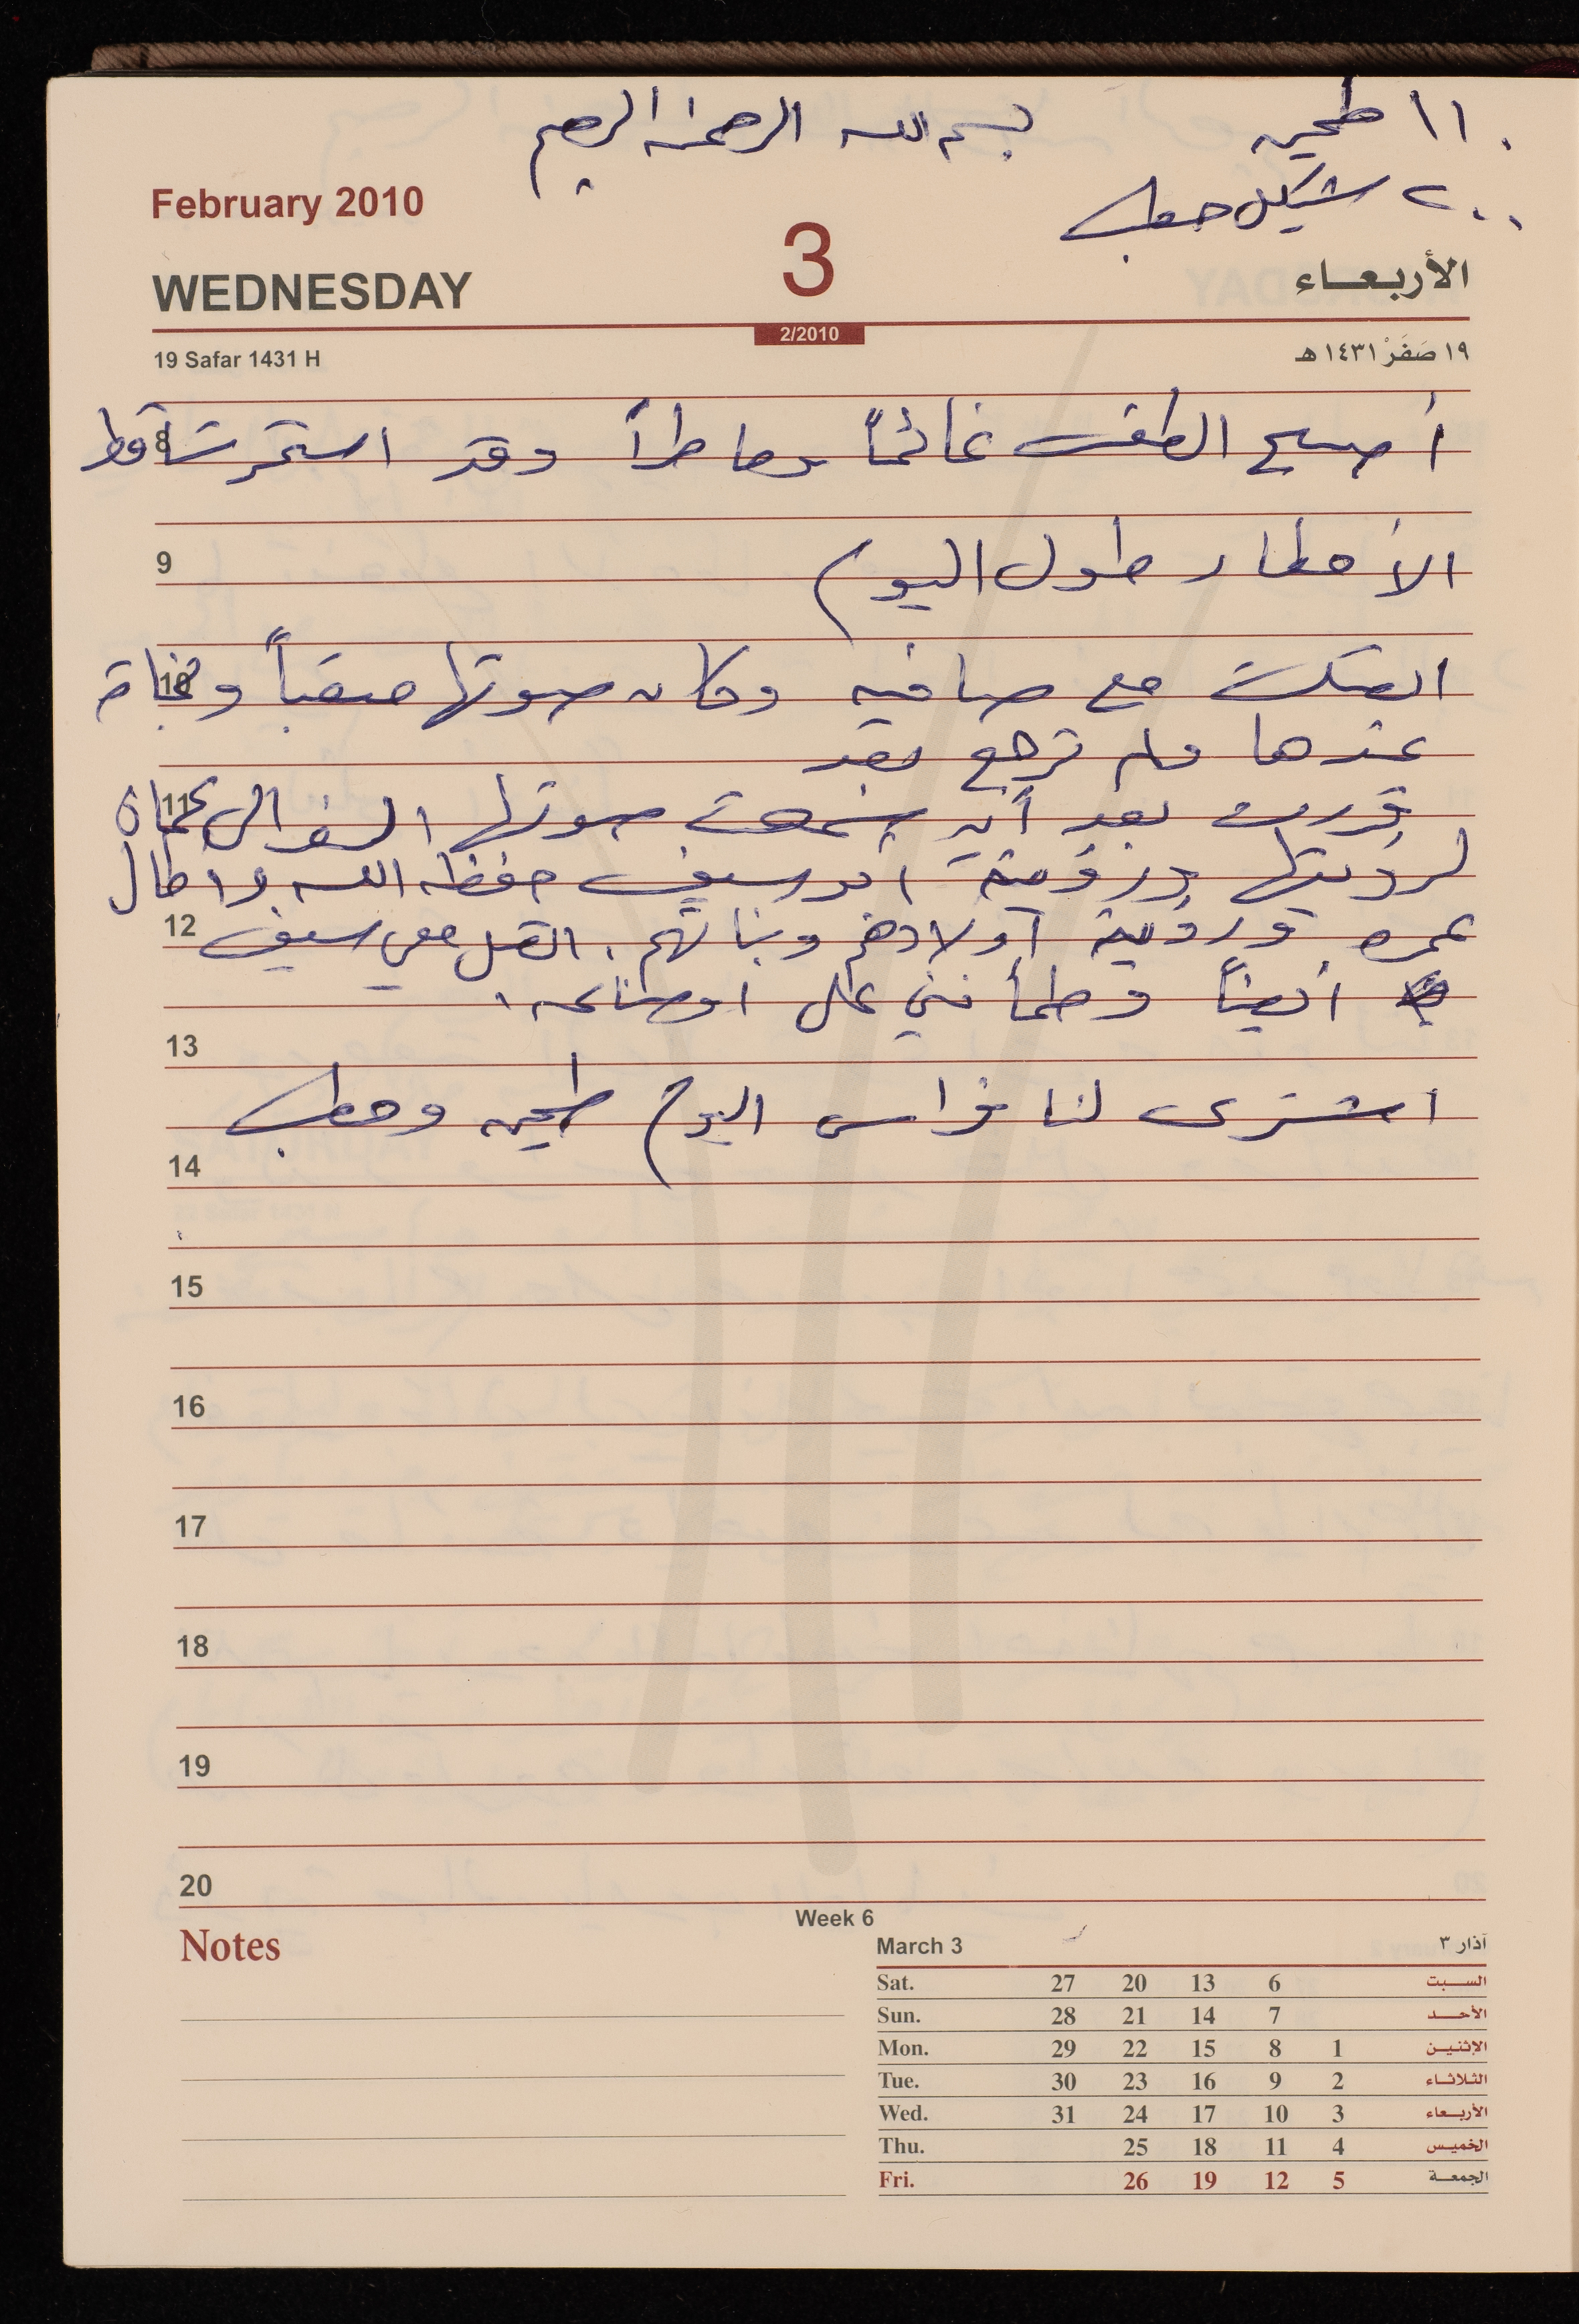 ١١٠ طحين
بسم الله الرحمن الرحيم
٢٠٠ شيكل حطب
February 2010
3
WEDNESDAY
الأربعـاء
2/2010
19 Safar 1431 H
١٩ صَفَرْ ١٤٣١ هـ
8
أصبح الطقس غائماً وماطراً وقد استمر تساقط
9
الأمطار طول اليوم
10
اتصلت مع صافيه وكان صوتها متعباً ونجاة
عندها ولم ترجع بعد
11
قررت بعد أن سمعت صوتها السفر الى عمان
لرؤيتها ورؤية ابو سيف حفظه الله واطال
12
عمره ورؤية أولادهم وبناتهم. اتصل معي سيف
أيضاً وطمأنني على اوضاعه.
13
اشترى لنا فراس اليوم طحين وحطب
14
15
16
17
18
19
20
Notes
Week 6
March 3
آذار ٣
Sat. 27 20 13 6 السبت
Sun. 28 21 14 7 الأحد
Mon. 29 22 15 8 1 الإثنين
Tue. 30 23 16 9 2 الثلاثاء
Wed. 31 24 17 10 3 الأربعاء
Thu. 25 18 11 4 الخميس
Fri. 26 19 12 5 الجمعة